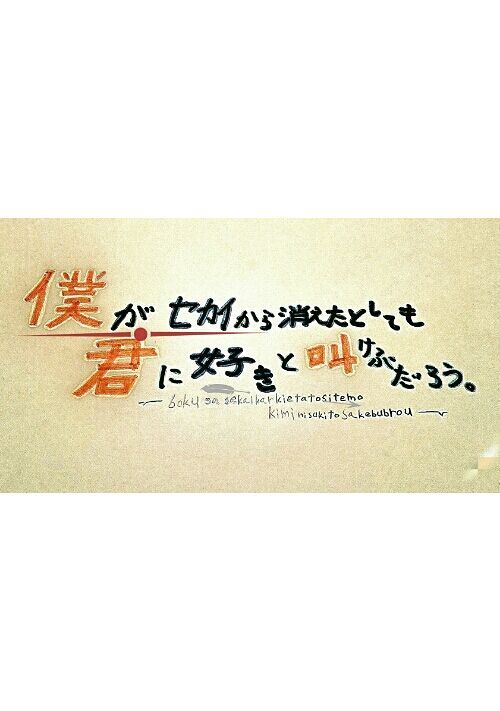 僕がセカイから消えたとしても
君に好きと叫けぶだろう。
boku ga sekaikarkietatositemo
kiminisukitosakebubrou